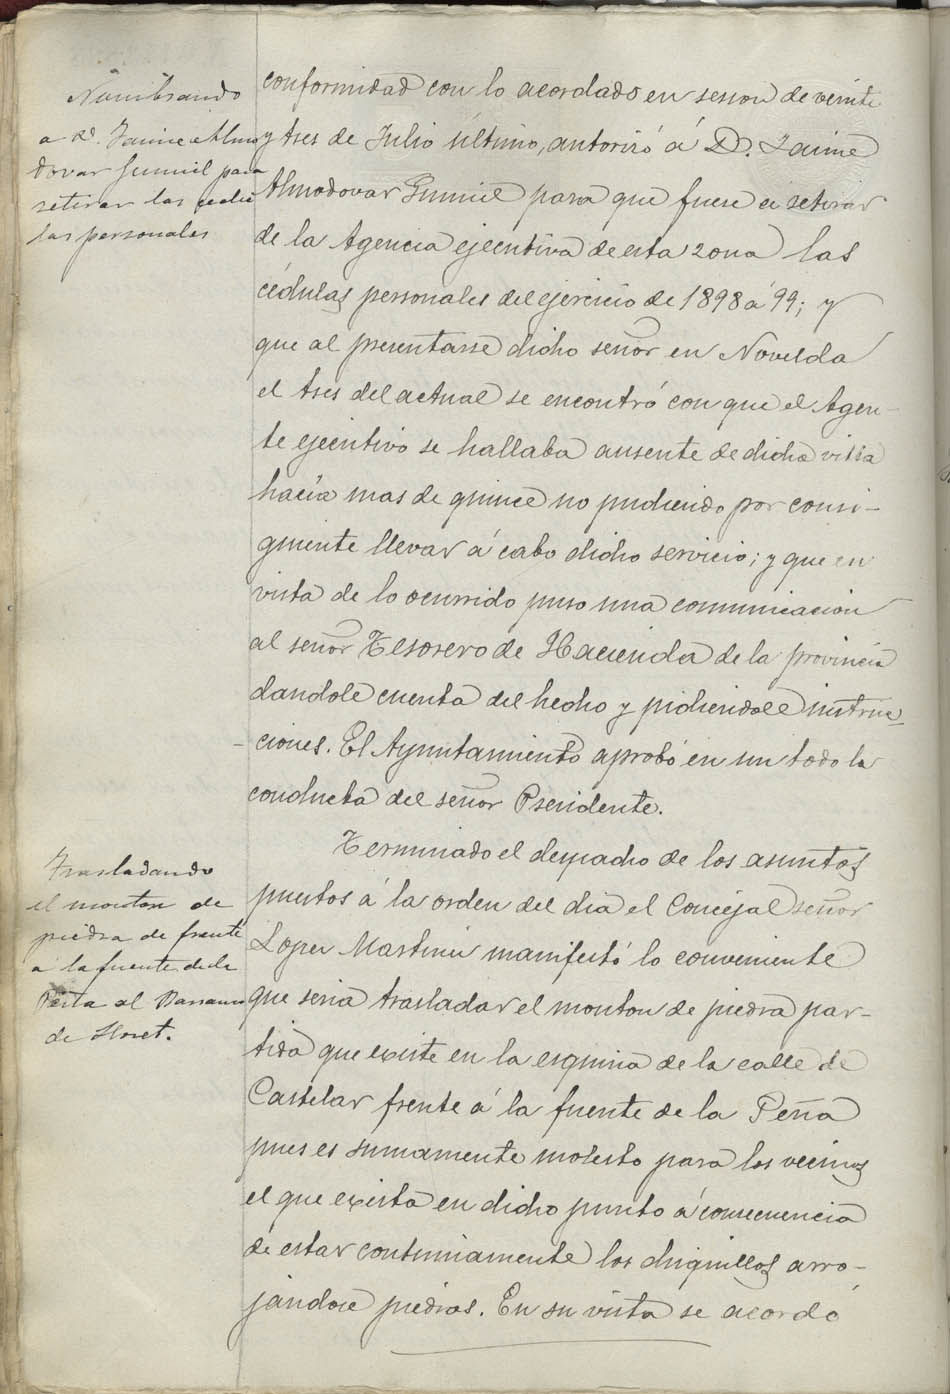 Nombrando
a D. Jaime Almo
dovar Gumiel para
retirar las cedu
las personales
conformidad con lo acordado en sesion de veinte
y tres de Julio último, autorizó á D. Jaime
Almodovar Gumiel para que fuese á retirar
de la Agencia ejecutiva de esta zona las
cédulas personales del ejercicio de 1898 á 99; y
que al presentarse dicho señor en Novelda
el tres del actual se encontró con que el Agen-
te ejecutivo se hallaba ausente de dicha villa
hacía mas de quince no pudiendo por consi-
guiente llevar á cabo dicho servicio; y que en
vista de lo ocurrido puso una comunicacion
al señor Tesorero de Hacienda de la provincia
dandole cuenta del hecho y pidiendole instruc-
ciones. El Ayuntamiento aprobó en un todo la
conducta del señor Presidente.
Trasladando
el monton de
piedra de frente
a la fuente de la
Peña al Barranco
de Lloret.
Terminado el despacho de los asuntos
puestos á la orden del dia el Concejal señor
Lopez Martinez manifestó lo conveniente
que seria trasladar el monton de piedra par-
tida que existe en la esquina de la calle de
Castelar frente á la fuente de la Peña
pues es sumamente molesto para los vecinos
el que exista en dicho punto á consecuencia
de estar continuamente los chiquillos arro-
jandose piedras. En su vista se acordó